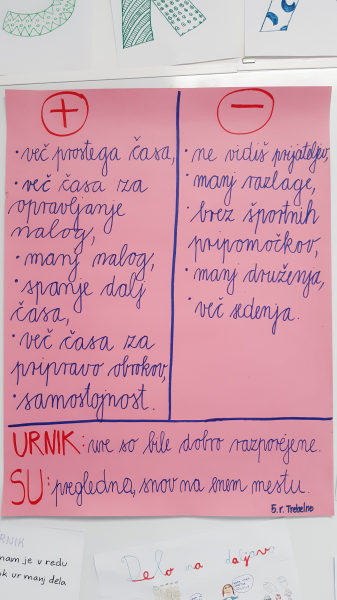 +
-
• več prostega časa,
• več časa za
opravljanje
nalog,
• manj nalog,
• spanje dalj
časa,
• več časa za
pripravo obrokov,
• samostojnost.
• ne vidiš prijateljev,
• manj razlage,
• brez športnih
pripomočkov,
• manj druženja,
• več sedenja.
URNIK: ure so bile dobro razporejene.
SU: pregledna, snov na enem mestu.
5. r. Trebelno
RNIK
nam je v redu
ur manj dela
Delo na daljavo